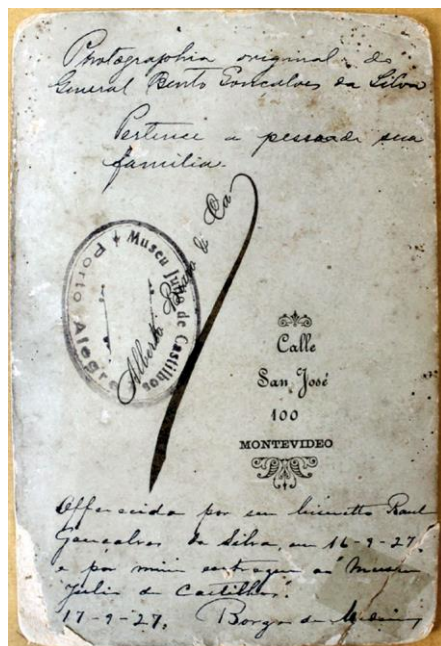 Photographia original do
General Bento Goncalves da Silva
Pertence a pessoa de sua
familia.
Museu Julio de Castilhos
Porto Alegre
Alberto & Ca
Calle
San José
100
MONTEVIDEO
Offerecida por seu bisnetto Raul
Gonçalves da Silva, em 16-9-27,
e por mim entregue ao Museu
Julio de Castilhos.
17-9-27. Borges de Medeiros